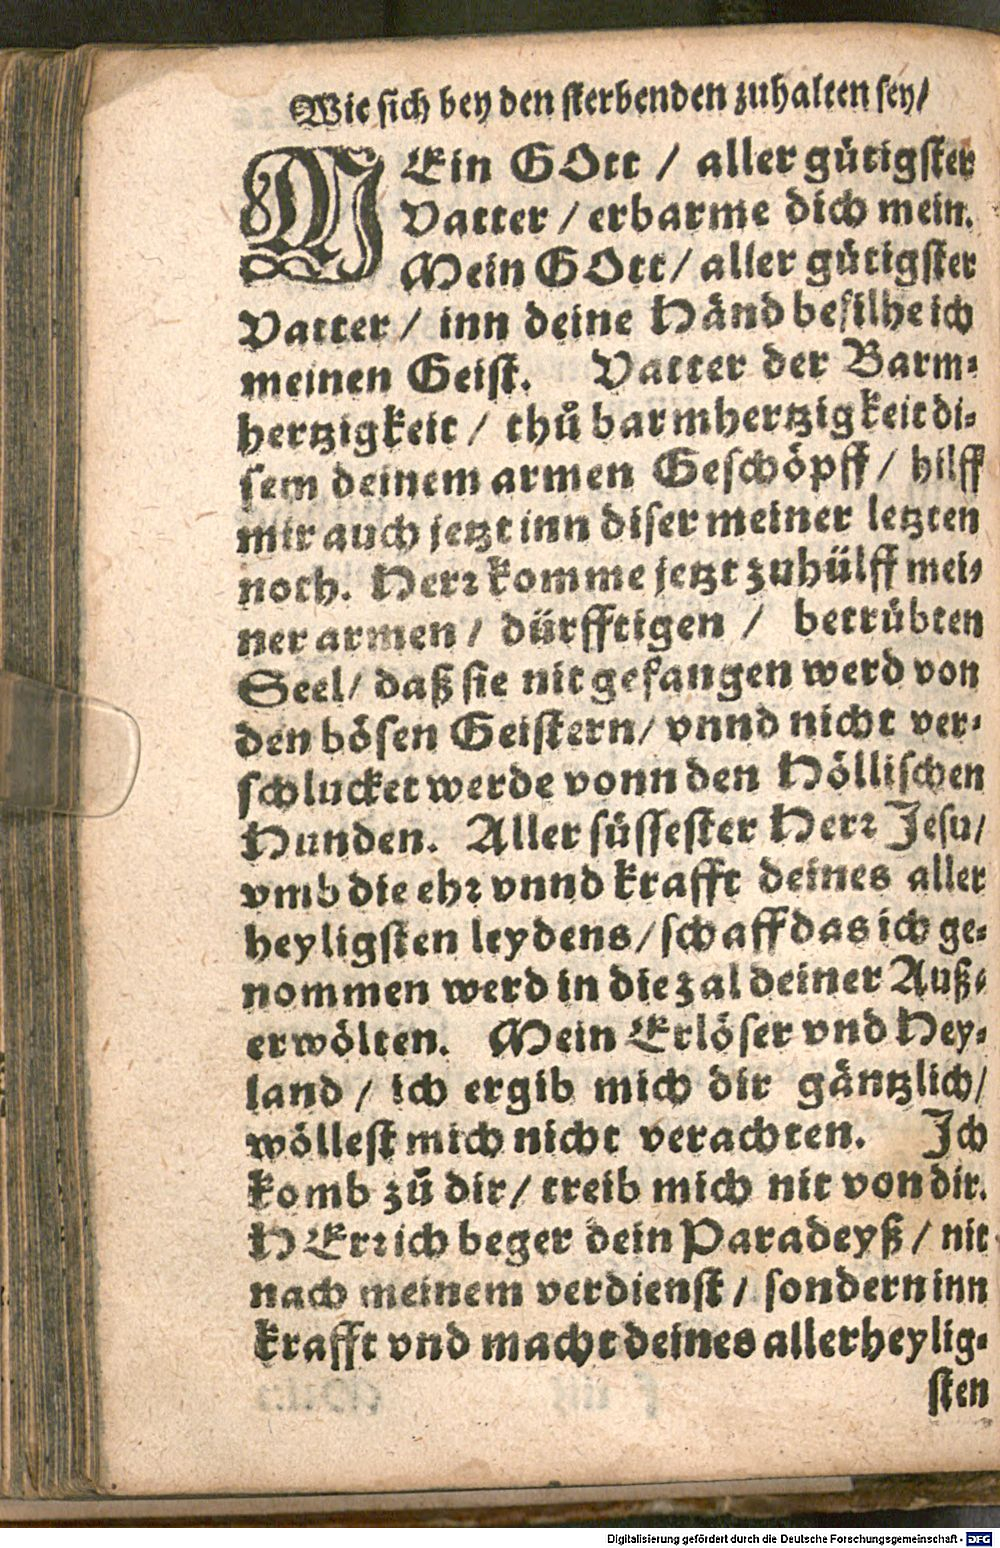 Wie sich bey den sterbenden zuhalten sey/
MEin GOtt / aller gütigster
Vatter / erbarme dich mein.
Mein GOtt / aller gütigster
Vatter / inn deine Händ befilhe ich
meinen Geist. Vatter der Barm⸗
hertzigkeit / thů barmhertzigkeit di⸗
sem deinem armen Geschöpff / hilff
mir auch jetzt inn diser meiner letzten
noth. Herꝛ komme jetzt zuhülff mei⸗
ner armen / dürfftigen / betrübten
Seel / daß sie nit gefangen werd von
den bösen Geistern / vnnd nicht ver⸗
schlucket werde vonn den Höllischen
Hunden. Aller süssester Herꝛ Jesu /
vmb die ehꝛ vnnd krafft deines aller
heyligsten leydens / schaff das ich ge⸗
nommen werd in die zal deiner Auß⸗
erwölten. Mein Erlöser vnd Hey⸗
land / ich ergib mich dir gäntzlich /
wöllest mich nicht verachten. Ich
komb zů dir / treib mich nit von dir.
HErꝛ ich beger dein Paradeyß / nit
nach meinem verdienst / sondern inn
krafft vnd macht deines allerheylig⸗
sten
Digitalisierung gefördert durch die Deutsche Forschungsgemeinschaft - DFG